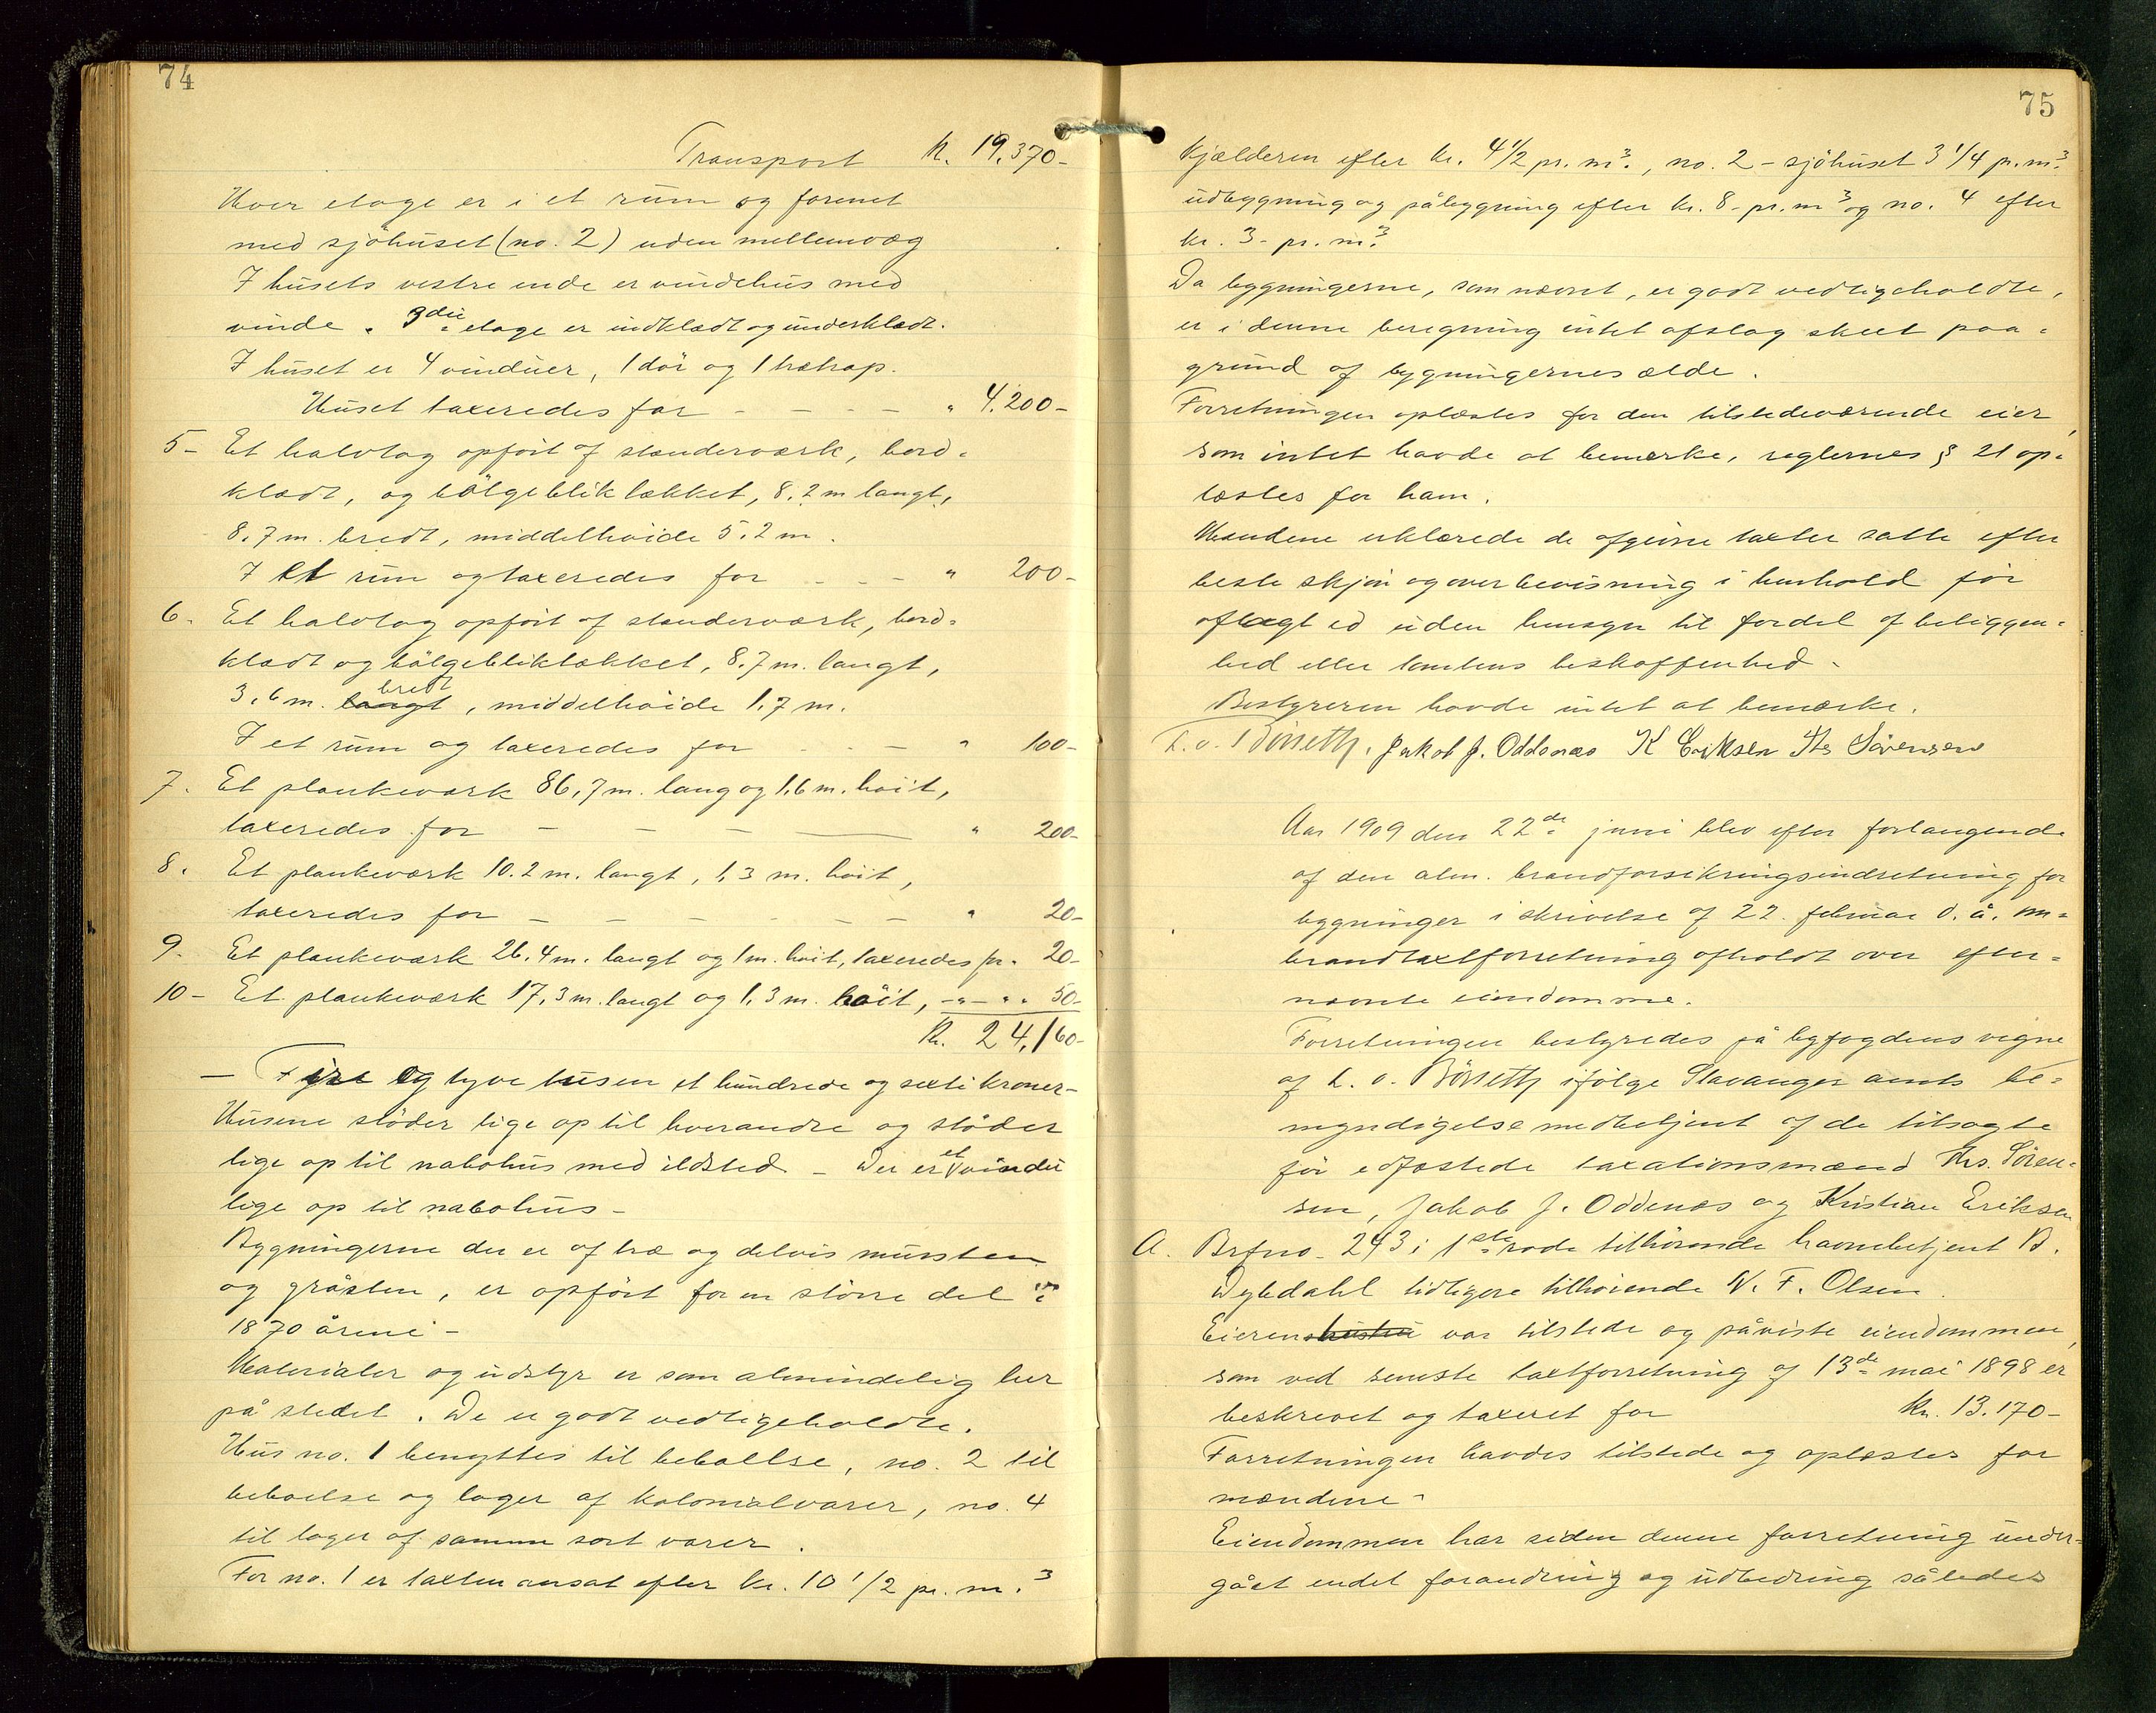 74
Transport K. 19,370-
Hver etage er i et rum og forenet
med sjøhuset (no. 2) uden mellemvæg
I husets vestre ende er vindehus med
vinde. 3die etage er indklædt og underklædt.
I huset er 4 vinduer, 1 dør og 1 trætrap.
Huset taxeredes for - - - - " 4.200-
5- Et halvtag opført af stenderværk, bord-
klædt, og bølgebliktækket, 8,2 m langt,
8,7 m. bredt, middelhøide 5,2 m.
I et rum og taxeredes for - - - " 200-
6. Et halvtag opført af stenderværk, bord-
klædt og bølgebliktækket, 8,7 m. langt,
3,6 m. langt bredt, middelhøide 1,7 m.
I et rum og taxeredes for - - - " 100-
7. Et plankeværk 86,7 m. lang og 1,6 m. høit,
taxeredes for - - - - " 200-
8. Et plankeværk 10.2 m. langt, 1,3 m. høit,
taxeredes for - - - - - - " 20-
9. Et plankeværk 26.4 m. langt og 1 m. høit, taxeredes for " 20-
10- Et plankeværk 17,3 m. langt og 1,3 m. høit, -"- " " 50-
Kr. 24,160-
- Fire og tyve tusen et hundrede og sexti kroner-
Husene støder lige op til hverandre og støder
lige op til nabohus med ildsted - Der er et vindu
lige op til nabohus-
Bygningerne der er af træ og delvis mursten
og gråsten, er opført for en større del i
1870 årene-
Materialer og udstyr er som almindelig her
på stedet. De er godt vedligeholdte.
Hus no. 1 benyttes til beboelse, no. 2 til
beboelse og lager af kolonialvarer, no. 4
til lager af samme sort varer.
For no. 1 er taxten ansat efter kr. 10 1/2 pr. m.3
75
Kjælderen efter kr. 4 1/2 pr. m3., no. 2 - sjøhuset 3 1/4 pr. m3.
udbygning og påbygning efter kr. 8- pr. m3 og no. 4 efter
kr. 3- pr. m3.
Da bygningerne, som nævnt, er godt vedligeholdte,
er i denne beregning intet afslag skeet paa-
grund af bygningernes ælde.
Forretningen oplæstes for den tilstedeværende eier,
som intet havde at bemerke, reglernes § 21 op-
læstes for ham.
Mændene erklærede de afgivne taxter satte efter
beste skjøn og overbevisning i henhold før
aflagt ed uden hensyn til fordel af beliggen-
hed eller tomtens beskaffenhed.
Bestyreren havde intet at bemærke.
L. v. Børseth. Jakob J. Oddenæs K Eriksen Ths Sørensen
Aar 1909 den 22de juni blev efter forlangende
af den alm. brandforsikringsindretning for
bygninger i skrivelse af 22. februar d. å. om-
brandtaxtforretning afholdt over efter-
nævnte eiendomme.
Forretningen bestyredes på byfogdens vegne
af L. v. Børseth ifølge Stavanger amts be-
myndigelse medbetjent af de tilsagte
før edfæstede taxationsmænd Ths. Sören-
sen, Jakob J. Oddenæs og Kristian Eriksen
A. Brfno- 243 i 1ste rode tilhørende havnebetjent B.
Dybdahl tidligere tilhørende N. F. Olsen.
Eierens hustru var tilstede og påviste eiendommen,
som ved seneste taxtforretning af 13de mai 1898 er
beskrevet og taxeret for Kr. 13.170-
Forretningen havdes tilstede og oplæstes for
mændene-
Eiendommen har siden denne forretning under-
gået endel forandring og udbedring således